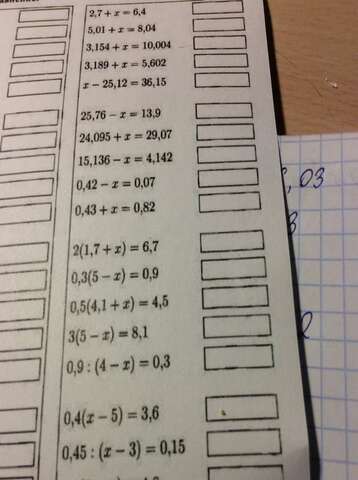 2,7 + x = 6,4
5,01 + x = 8,04
3,154 + x = 10,004
3,189 + x = 5,602
x − 25,12 = 36,15
25,76 − x = 13,9
24,095 + x = 29,07
15,136 − x = 4,142
0,42 − x = 0,07
0,43 + x = 0,82
2(1,7 + x) = 6,7
0,3(5 − x) = 0,9
0,5(4,1 + x) = 4,5
3(5 − x) = 8,1
0,9 : (4 − x) = 0,3
0,4(x − 5) = 3,6
0,45 : (x − 3) = 0,15
,03